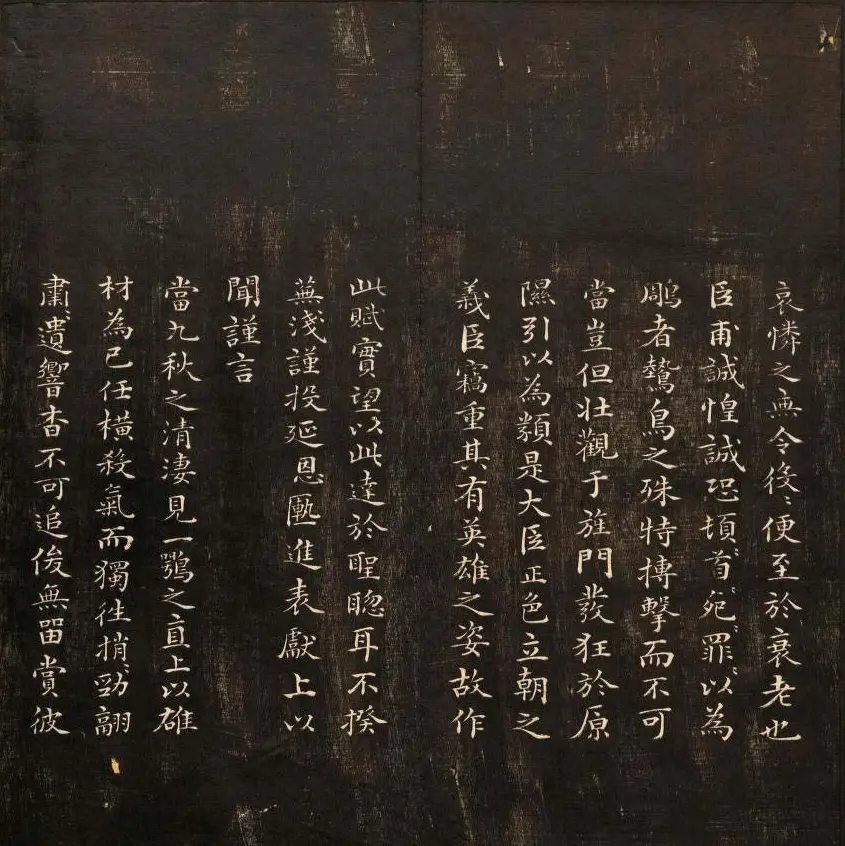 哀憐之無令役〻便至於衰老也
臣甫誠惶誠恐頓〻首〻死〻罪〻以為
鵰者鷙鳥之殊特搏擊而不可
當豈但壯觀于旌門發狂於原
隰引以為類是大臣正色立朝之
義臣竊重其有英雄之姿故作
此賦實望以此達於聖聰耳不揆
蕪淺謹投延恩匭進表獻上以
聞謹言
當九秋之清淒見一鶚之直上以雄
材為己任橫殺氣而獨往捎〻勁翮
肅〻遺響杳不可追俊無留賞彼